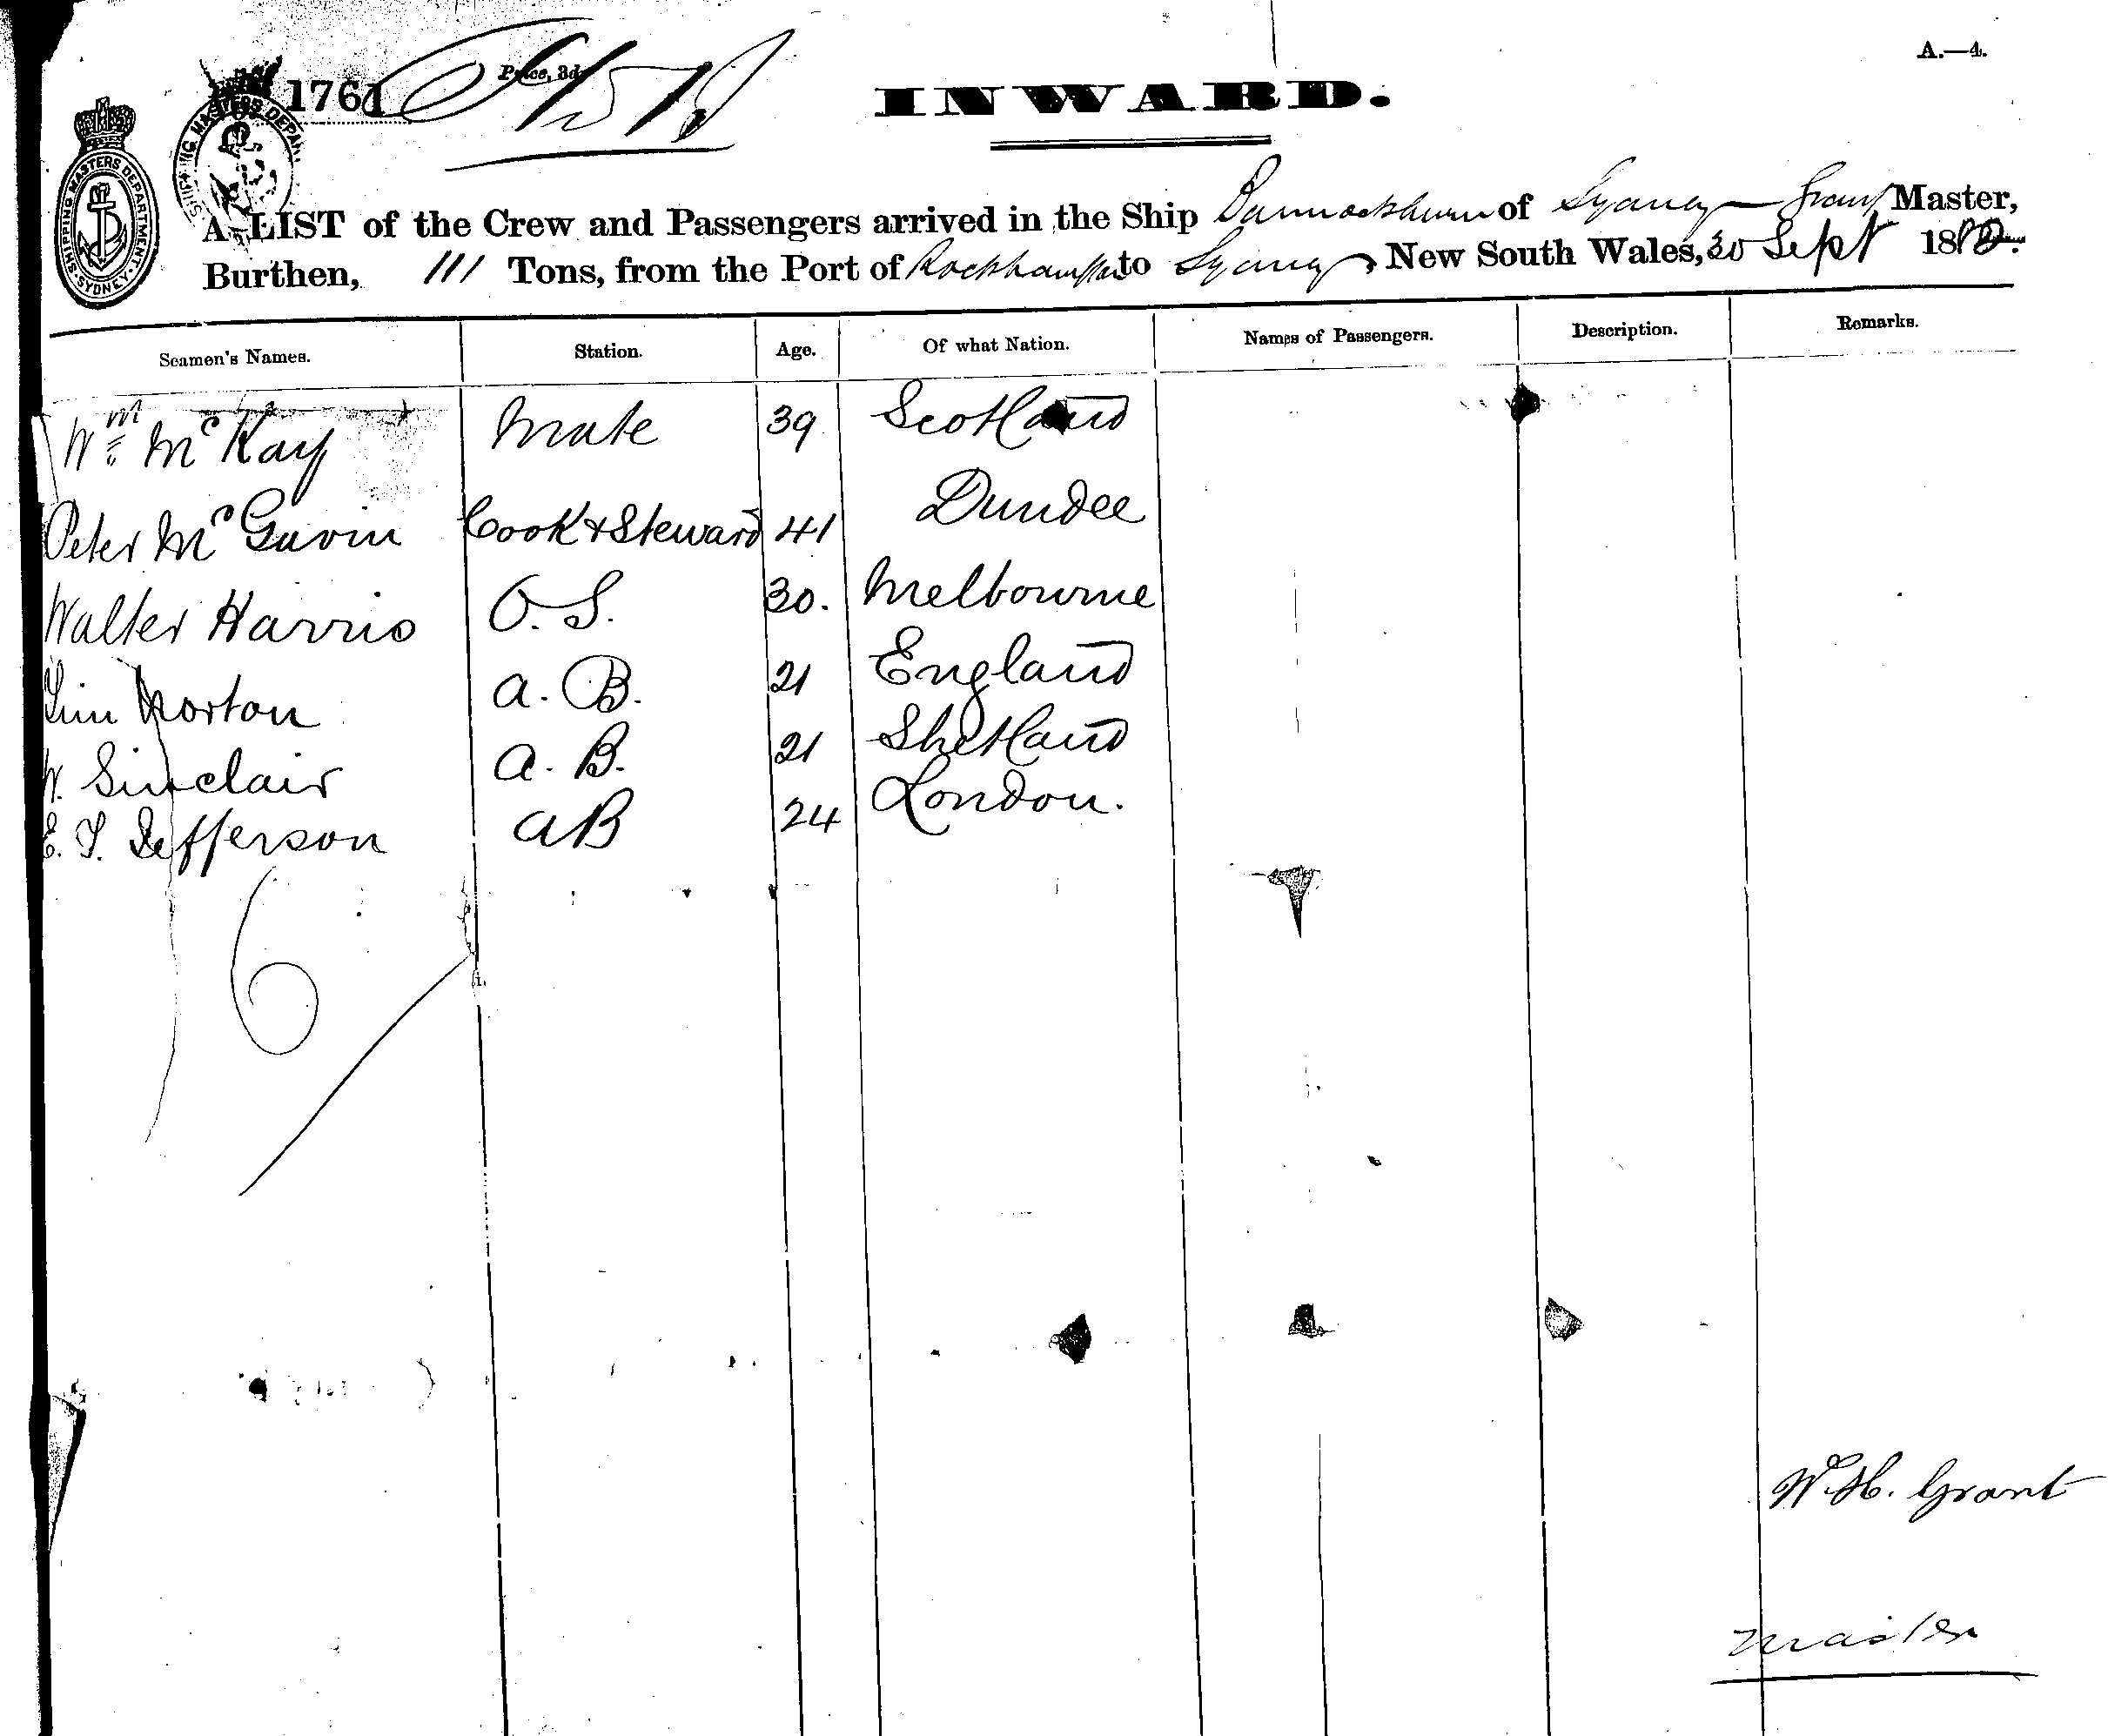 A.—4.
1761
Price, 3d.
INWARD.
SHIPPING MASTERS DEPARTMENT. SYDNEY
A LIST of the Crew and Passengers arrived in the Ship Bannockburn of Sydney Grant Master,
Burthen, 111 Tons, from the Port of Rockhampton to Sydney New South Wales, 30 Sept 188
Seamen's Names. Station. Age. Of what Nation. Names of Passengers. Description. Remarks.
Wm McKay Mate 39 Scotland
Peter McGavin Cook & Steward 41 Dundee
Walter Harris O.S. 30. Melbourne
Norton A.B. 21 England
W. Sinclair A.B. 21 Shetland
E. T. Jefferson AB 24 London.
6
W.H. Grant
Master